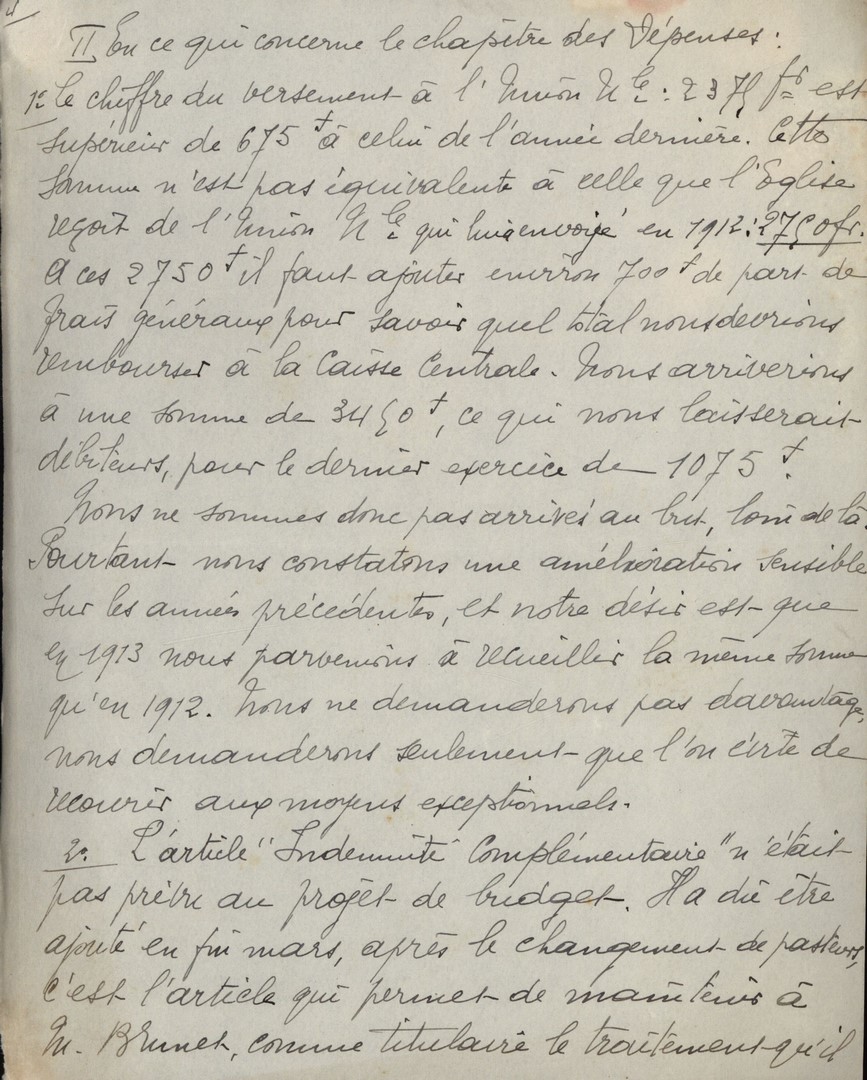 II En ce qui concerne le chapitre des Dépenses :
1º Le chiffre du versement à l'Union Nle : 2375 fr est
supérieur de 675 f à celui de l'année dernière. Cette
somme n'est pas équivalente à celle que l'Eglise
reçoit de l'Union Nle qui lui a envoyé en 1912 : 2750 fr.
A ces 2750 f il faut ajouter environ 700 f de part de
frais généraux pour savoir quel total nous devrions
rembourser à la Caisse Centrale. Nous arriverions
à une somme de 3450 f, ce qui nous laisserait
débiteurs, pour le dernier exercice de 1075 f.
Nous ne sommes donc pas arrivés au but, loin de là.
Pourtant nous constatons une amélioration sensible
sur les années précédentes, et notre désir est que
en 1913 nous parvenions à recueillir la même somme
qu'en 1912. Nous ne demanderons pas davantage,
nous demanderons seulement que l'on évite de
recourir aux moyens exceptionnels.
2º L'article "Indemnité Complémentaire" n'était
pas prévu au projet de budget. Il a dû être
ajouté en fin mars, après le changement de pasteurs,
c'est l'article qui permet de maintenir à
M. Brunet, comme titulaire le traitement qu'il